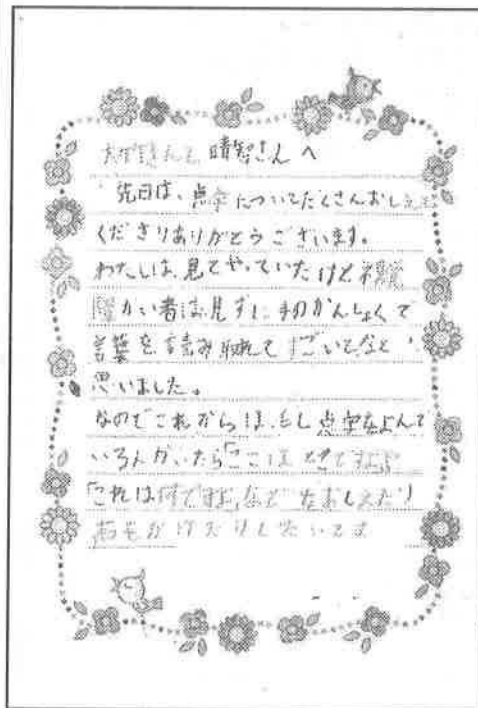 晴智さんへ
先日は、点字についてたくさんおしえて
くださりありがとうございます。
わたしは、見てやっていたけど、視覚
障がい者は見ずに、手のかんしょくで
言葉を読み取れてすごいなと
思いました。
なのでこれからは、もし点字をよんで
いる人がいたら「ここは ですよ」
「これは何ですよ」などおしえたり
したいです